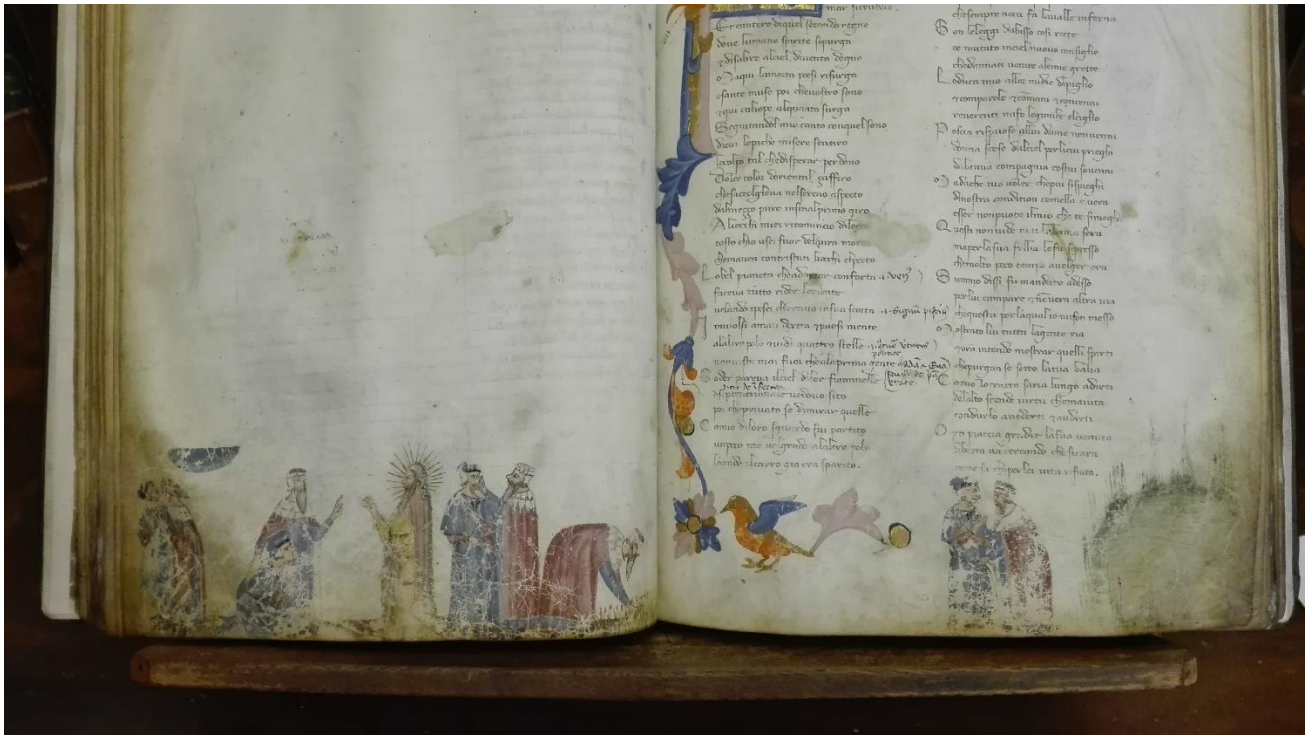 mar sicrudele.
Et cantero diquel secondo regno
doue lumano spirito sipurga
& disalire alciel diuenta degno
Ma qui lamorta poesi risurga
o sante muse poi cheuostro sono
& qui caliope alquanto surga
Seguitandol mio canto conquel sono
di cui lepiche misere sentiro
lo colpo tal chedisperar perdono
Dolce color doriental zaffiro
chesicoglieua nelsereno aspecto
dalmezzo puro infinalprimo giro
A liocchi miei ricomincio dilecto
tosto chio usci fuor delaura morta
chemauea contristati liocchi elpecto
Lo bel pianeta chadamar conforta
faceua tutto rider loriente
uelando ipesci cherano insua scorta
I mi uolsi aman dextra & puosi mente
alaltro polo & uidi quattro stelle
non uiste mai fuor chalaprima gente
Goder pareua ilciel dilor fiammelle
o septentrionale uedouo sito
poi che priuato se dimirar quelle
Come diloro sguardo fui partito
un poco me uolgendo alaltro polo
laonde ilcarro gia era sparito.
chesempre nera fa laualle inferna.
Son leleggi dabisso cosi rotte
o e mutato inciel nuouo consiglio
chedannati uenite alemie grotte
Lo duca mio allor midie dipiglio
& comparole & commani & concenni
reuerenti mi fe legambe elciglio
Poscia rispuose allui dame nonuenni
donna scese dalciel perlicui prieghi
delamia compagnia costui souenni
Ma dache tuo uoler chepiu sispieghi
dinostra condition comella e uera
esser nonpuote ilmio cha te sinieghi
Questi nonuide mai lultima sera
maperlasua follia lefu sipresso
chemolto poco tempo auolger era
Si como dissi fu mandato adesso
per lui campare & non uera altra uia
chequesta perlaquale io misson messo
Mostrato ho lui tutta lagente ria
& ora intendo mostrar quelli spirti
chepurgan se sotto latua balia
Como lo tracto saria lungo adirti
delalto scende uirtu chemaiuta
conducerlo auederti & audirti
Or ti piaccia gradir lasua uenuta
liberta ua cercando che si cara
come sa chi perlei uita rifiuta.